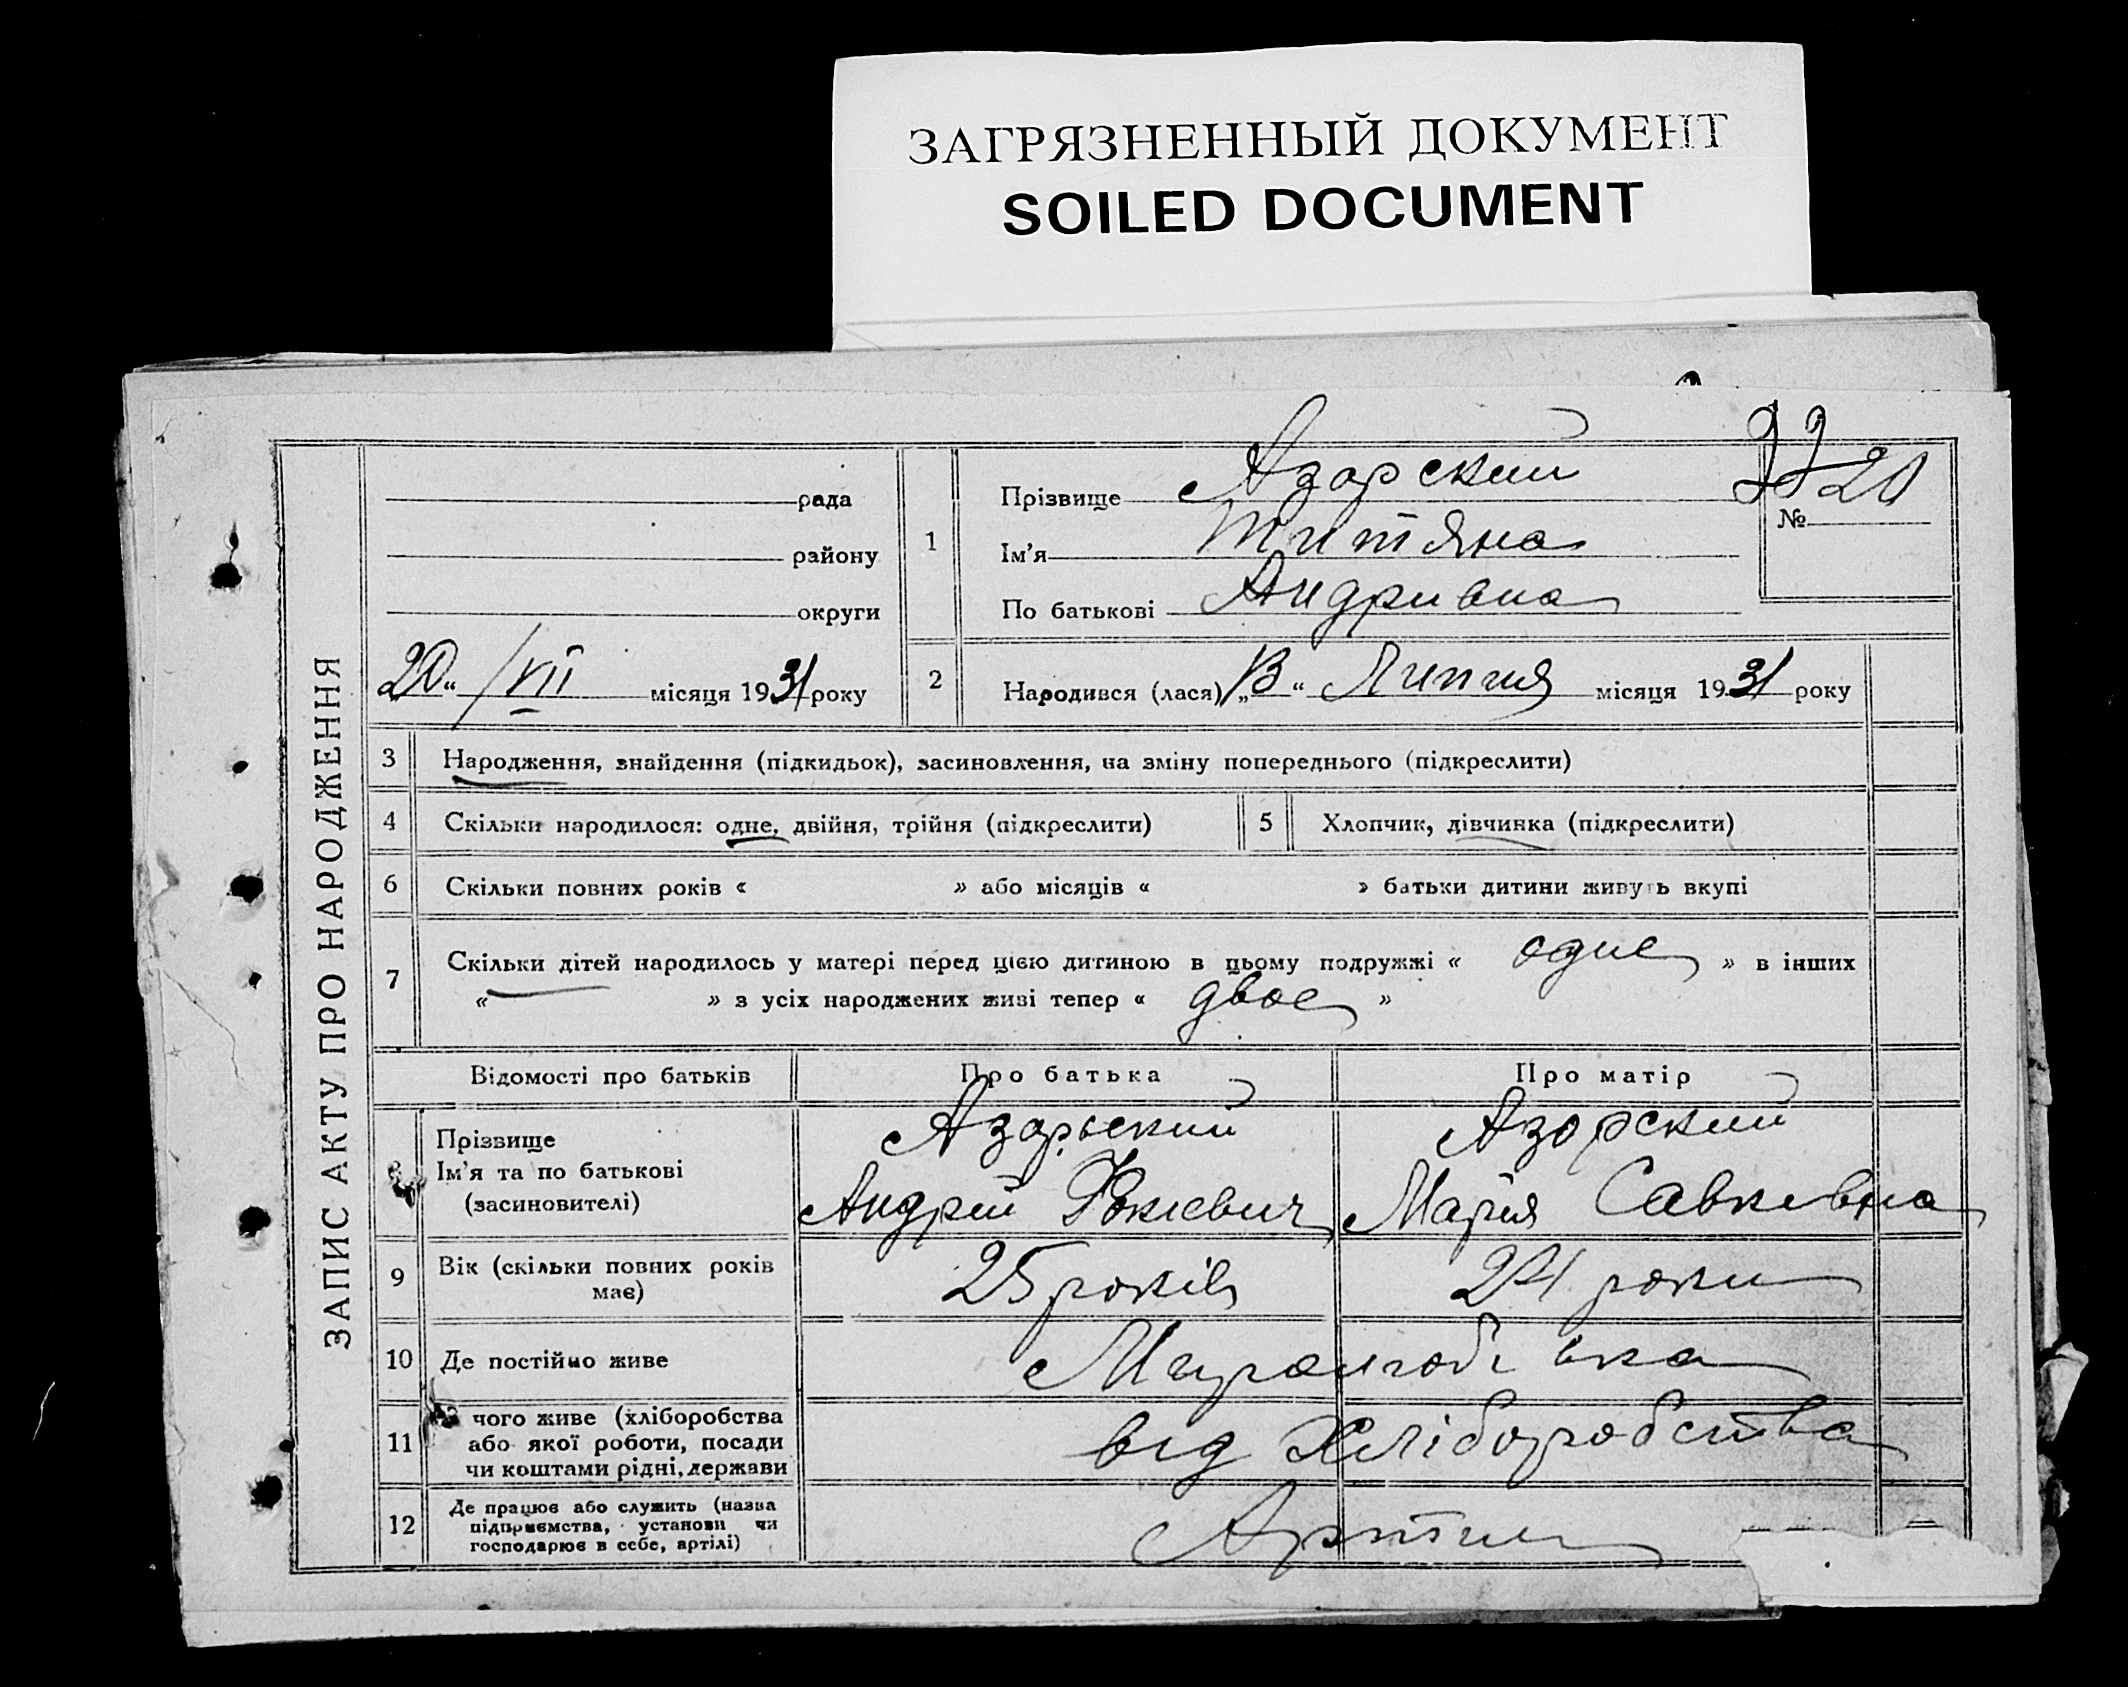 ЗАГРЯЗНЕННЫЙ ДОКУМЕНТ
SOILED DOCUMENT
ЗАПИС АКТУ ПРО НАРОДЖЕННЯ
рада
району
округи
20 " /VII місяця 1931 року
1
Прізвище Азарский
Ім'я Титяна
По батькові Андривна
20
№
2 Народився (лася) „13 “ Липня місяця 1931 року
3 Народження, знайдення (підкидьок), засиновлення, на зміну попереднього (підкреслити)
4 Скільки народилося: одне, двійня, трійня (підкреслити)
5 Хлопчик, дівчинка (підкреслити)
6 Скільки повних років « » або місяців « » батьки дитини живуть вкупі
7 Скільки дітей народилось у матері перед цією дитиною в цьому подружжі « одне » в інших
« » з усіх народжених живі тепер « двое »
Відомості про батьків Про батька Про матір
8 Прізвище
Ім'я та по батькові
(засиновителі)
Азарьский
Андрій Фокиевич
Азорский
Мария Савкивна
9 Вік (скільки повних років
має)
25 років
24 роки
10 Де постійно живе
11 чого живе (хліборобства
або якої роботи, посади
чи коштами рідні, держави
від Хліборобства
12 Де працює або служить (назва
підприємства, установи чи
господарює в себе, артілі)
Артил